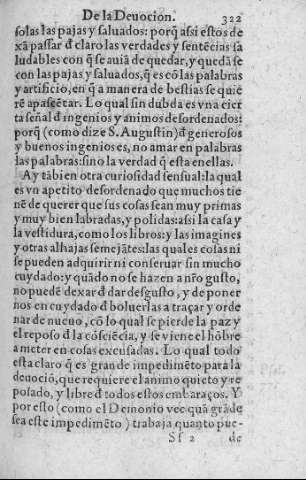 De la Deuocion. 322
solas las pajas y saluados: porq̃ assi estos de
xã passar đ claro las verdades y sentẽcias sa
ludables con q̃ se auiã de quedar, y quedã se
con las pajas y saluados, q̃ es cõ las palabras
y artificio, en q̃ a manera de bestias se quie
rẽ apascẽtar. Lo qual sin dubda es vna cier
ta señal đ ingenios y animos desordenados:
porq̃ (como dize S. Augustin) đ generosos
y buenos ingenios es, no amar en palabras
las palabras: sino la verdad q̃ esta enellas.
Ay tãbien otra curiosidad sensual: la qual
es vn apetito desordenado que muchos tie
nẽ de querer que sus cosas sean muy primas
y muy bien labradas, y polidas: assi la casa y
la vestidura, como los libros: y las imagines
y otras alhajas semejãtes: las quales cosas ni
se pueden adquirir ni conseruar sin mucho
cuydado: y quãdo no se hazen a nr̃o gusto,
no puedẽ dexar đ dar desgusto, y de poner
nos en cuydado đ boluerlas a traçar y orde
nar de nueuo, cõ lo qual se pierde la paz y
el reposo đ la cõsciẽcia, y se viene el hõbre
a meter en cosas excusadas. Lo qual todo
esta claro q̃ es grande impedimẽto para la
deuociõ, que requiere el animo quieto y re
posado, y libre đ todos estos embaraços. Y
por esto (como el Demonio vee quã grãde
sea este impedimẽto) trabaja quanto pue-
Sf 2 de